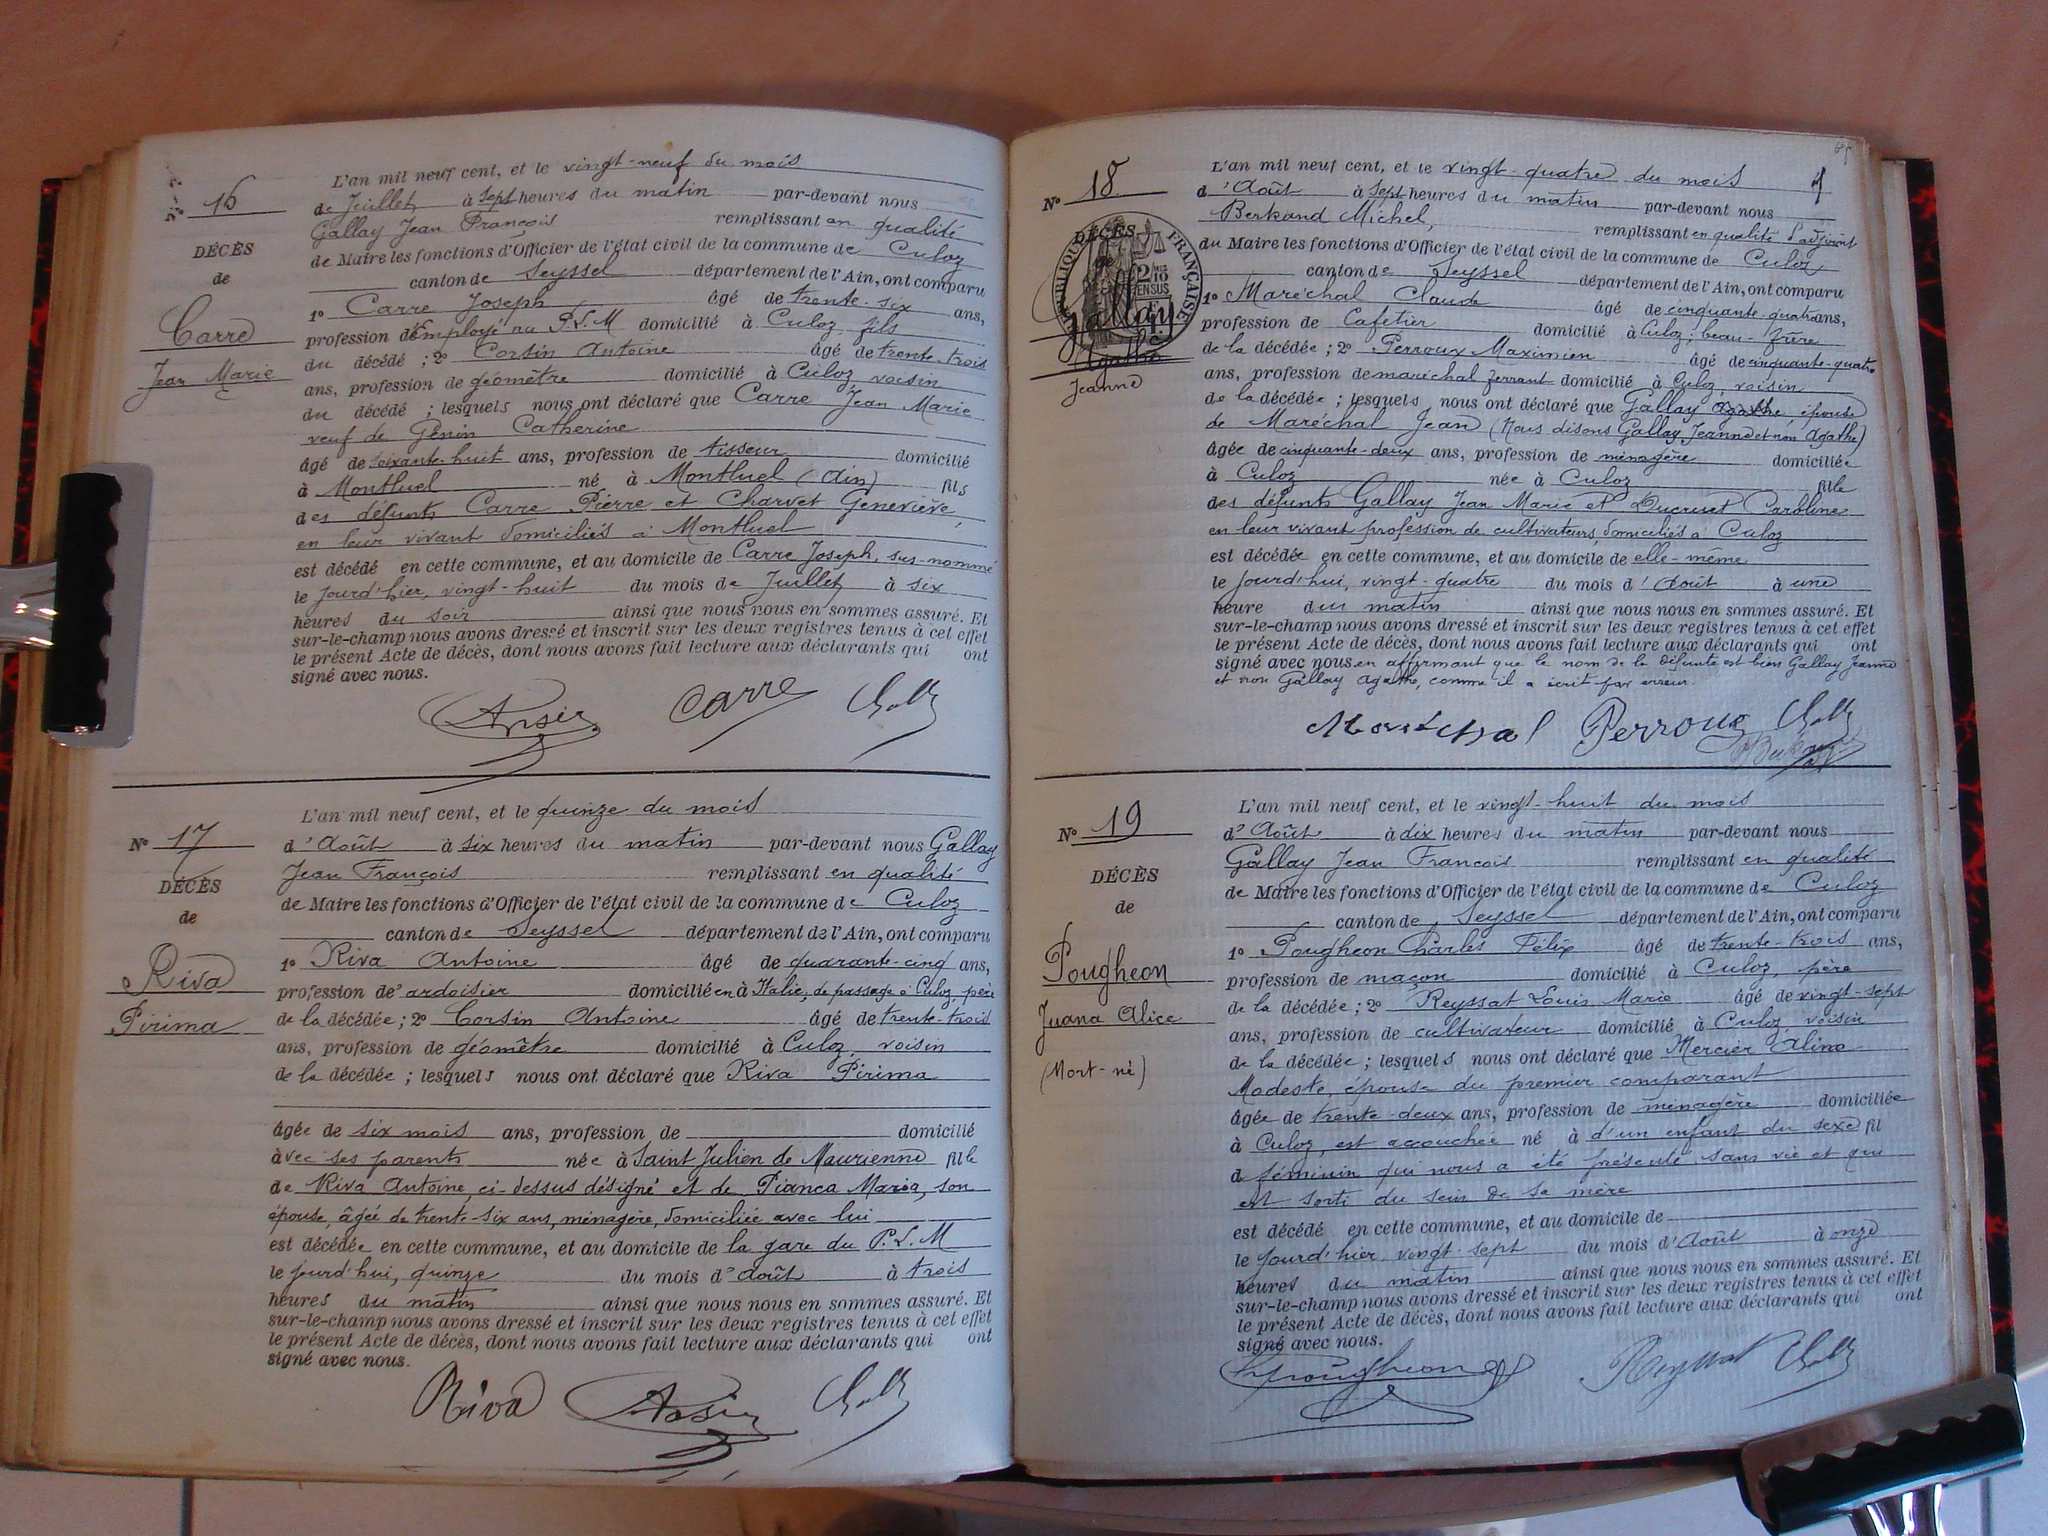 N° 16
DÉCÈS
de
Carre
Jean Marie
L'an mil neuf cent, et le vingt-neuf du mois
de Juillet à sept heures du matin par-devant nous
Gallay Jean François remplissant en qualité
de Maire les fonctions d'Officier de l'état civil de la commune de Culoz
canton de Seyssel département de l'Ain, ont comparu
1° Carre Joseph âgé de trente-six ans,
profession d'Employé au P.L.M domicilié à Culoz, fils
du décédé ; 2° Corsin Antoine âgé de trente-trois
ans, profession de géomètre domicilié à Culoz, voisin
du décédé ; lesquels nous ont déclaré que Carre Jean Marie
veuf de Génin Catherine
âgé de soixante-huit ans, profession de tisseur domicilié
à Montluel né à Montluel (Ain) fils
des défunts Carre Pierre et Charvet Geneviève,
en leur vivant domiciliés à Montluel
est décédé en cette commune, et au domicile de Carre Joseph, sus-nommé
le jourd'hier, vingt-huit du mois de Juillet à six
heures du soir ainsi que nous nous en sommes assuré. Et
sur-le-champ nous avons dressé et inscrit sur les deux registres tenus à cet effet
le présent Acte de décès, dont nous avons fait lecture aux déclarants qui ont
signé avec nous.
Carre
N° 17
DÉCÈS
de
Riva
Pirima
L'an mil neuf cent, et le quinze du mois
d'Août à six heures du matin par-devant nous Gallay
Jean François remplissant en qualité
de Maire les fonctions d'Officier de l'état civil de la commune de Culoz
canton de Seyssel département de l'Ain, ont comparu
1° Riva Antoine âgé de quarante-cinq ans,
profession d'ardoisier domicilié en à Italie, de passage à Culoz, père
de la décédée ; 2° Corsin Antoine âgé de trente-trois
ans, profession de géomètre domicilié à Culoz, voisin
de la décédée ; lesquels nous ont déclaré que Riva Pirima
âgée de six mois ans, profession de domicilié
avec ses parents née à Saint Julien de Maurienne fille
de Riva Antoine, ci-dessus désigné et de Pianca Maria, son
épouse, âgée de trente-six ans, ménagère, domiciliée avec lui
est décédée en cette commune, et au domicile de la gare du P.L.M
le jourd'hui, quinze du mois d'août à trois
heures du matin ainsi que nous nous en sommes assuré. Et
sur-le-champ nous avons dressé et inscrit sur les deux registres tenus à cet effet
le présent Acte de décès, dont nous avons fait lecture aux déclarants qui ont
signé avec nous.
Riva
N° 18
DÉCÈS
de
RÉPUBLIQUE FRANÇAISE
Gallay
Agathe
Jeanne
L'an mil neuf cent, et le vingt-quatre du mois
d'Août à sept heures du matin par-devant nous
Bertrand Michel, remplissant en qualité d'adjoint
du Maire les fonctions d'Officier de l'état civil de la commune de Culoz
canton de Seyssel département de l'Ain, ont comparu
1° Maréchal Claude âgé de cinquante-quatre ans,
profession de Cafetier domicilié à Culoz, beau-frère
de la décédée ; 2° Perroux Maximien âgé de cinquante-quatre
ans, profession de maréchal ferrant domicilié à Culoz, voisin
de la décédée ; lesquels nous ont déclaré que Gallay Agathe, épouse
de Maréchal Jean (Nous disons Gallay Jeanne et non Agathe)
âgée de cinquante-deux ans, profession de ménagère domiciliée
à Culoz née à Culoz fille
des défunts Gallay Jean Marie et Ducruet Caroline
en leur vivant profession de cultivateurs, domiciliés à Culoz
est décédée en cette commune, et au domicile de elle-même
le jourd'hui, vingt-quatre du mois d'Août à une
heure du matin ainsi que nous nous en sommes assuré. Et
sur-le-champ nous avons dressé et inscrit sur les deux registres tenus à cet effet
le présent Acte de décès, dont nous avons fait lecture aux déclarants qui ont
signé avec nous en affirmant que le nom de la défunte est bien Gallay Jeanne
et non Gallay Agathe, comme il a écrit par erreur.
Perroux
N° 19
DÉCÈS
de
Pougheon
Juana Alice
(Mort-né)
L'an mil neuf cent, et le vingt-huit du mois
d'Août à dix heures du matin par-devant nous
Gallay Jean François remplissant en qualité
de Maire les fonctions d'Officier de l'état civil de la commune de Culoz
canton de Seyssel département de l'Ain, ont comparu
1° Pougheon Charles Félix âgé de trente-trois ans,
profession de maçon domicilié à Culoz, père
de la décédée ; 2° Reyssat Louis Marie âgé de vingt-sept
ans, profession de cultivateur domicilié à Culoz, voisin
de la décédée ; lesquels nous ont déclaré que Mercier Aline
Modeste, épouse du premier comparant
âgée de trente-deux ans, profession de ménagère domiciliée
à Culoz, est accouchée né à d'un enfant du sexe fil
d féminin qui nous a été présenté sans vie et qui
est sorti du sein de sa mère
est décédé en cette commune, et au domicile de
le jourd'hier, vingt-sept du mois d'Août à onze
heures du matin ainsi que nous nous en sommes assuré. Et
sur-le-champ nous avons dressé et inscrit sur les deux registres tenus à cet effet
le présent Acte de décès, dont nous avons fait lecture aux déclarants qui ont
signé avec nous.
Pougheon Reyssat